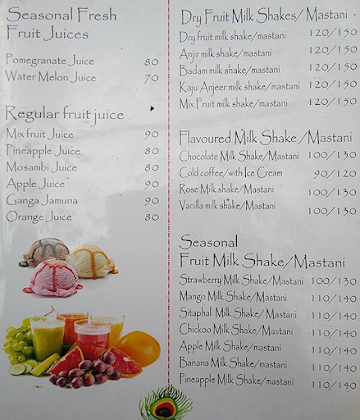 Seasonal Fresh
Fruit Juices
Pomegranate Juice 80
Water Melon Juice 70
Regular fruit juice
Mix fruit Juice 90
Pineapple Juice 80
Mosambi Juice 80
Apple Juice 90
Ganga Jamuna 90
Orange Juice 80
Dry Fruit Milk Shakes/Mastani
Dry fruit milk shake/mastani 120/150
Anjir milk shake/mastani 120/150
Badam milk shake/mastani 120/150
Kaju Anjeer milk shake/mastani 120/150
Mix Fruit milk shake/mastani 120/150
Flavoured Milk Shake/Mastani
Chocolate Milk Shake/Mastani 100/130
Cold coffee/with Ice Cream 90/120
Rose Milk shake/Mastani 100/130
Vanilla milk shake/Mastani 100/130
Seasonal
Fruit Milk Shake/Mastani
Strawberry Milk Shake/Mastani 100/130
Mango Milk Shake/Mastani 110/140
Sitaphal Milk Shake/Mastani 110/140
Chickoo Milk Shake/Mastani 110/140
Apple Milk Shake/Mastani 110/140
Banana Milk Shake/Mastani 110/140
Pineapple Milk Shake/Mastani 110/140